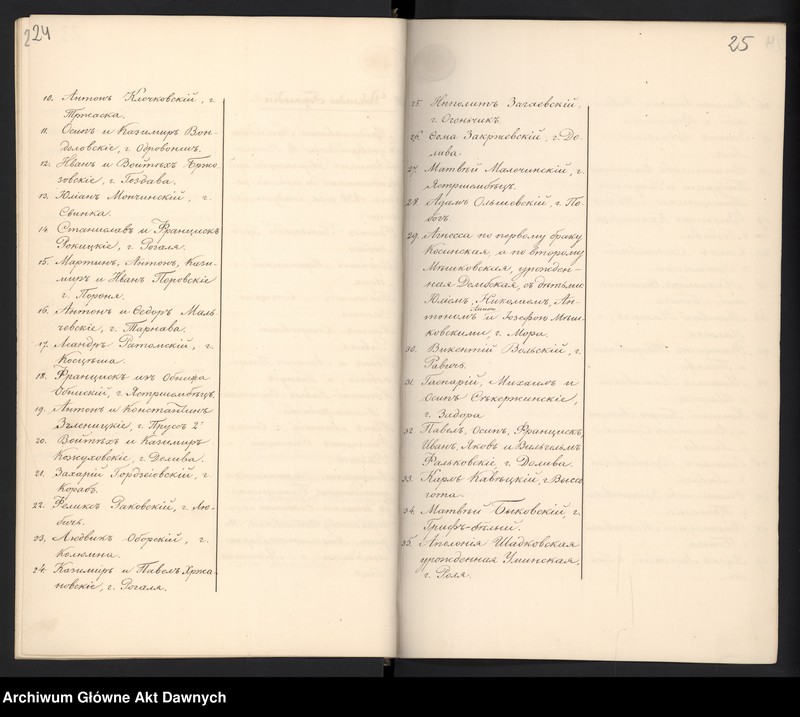 224
10. Антонъ Клочковскій, г.
Тржаска.
11. Осипъ и Казимиръ Вон-
доловскіе, г. Одровонжъ.
12. Иванъ и Войтѣхъ Бржо-
зовскіе, г. Гоздава.
13. Юліанъ Мончинскій, г.
Свинка.
14. Станиславъ и Францискъ
Рокицкіе, г. Рогаля.
15. Мартинъ, Антонъ, Кази-
миръ и Иванъ Поровскіе
г. Пороня.
16. Антонъ и Ѳедоръ Маль-
чевскіе, г. Тарнава.
17. Леандръ Ратомскій, г.
Косцѣша.
18. Францискъ изъ Обнифа
Обнискій, г. Ястршембѣцъ.
19. Антонъ и Константинъ
Зѣленицкіе, г. Прусъ 2º
20. Войтѣхъ и Казимиръ
Кожуховскіе, г. Долива.
21. Захарій Гордзѣовскій, г.
Корабъ.
22. Феликсъ Раковскій, г. Лю-
бичъ.
23. Людвикъ Оборскій, г.
Колюмна.
24. Казимиръ и Павелъ Хржа-
новскіе, г. Рогаля.
25
25. Ипполитъ Загаевскій,
г. Огончикъ
26. Ѳома Закржевскій, г. До-
лива.
27. Матвѣй Малочинскій, г.
Ястршембѣцъ.
28. Адамъ Ольшевскій, г. По-
богъ.
29. Агнесса по первому браку
Косинская, а по второму
Мѣшковская, урожден-
ная Дембская, съ дѣтьми
Юліемъ, Николаемъ, Ан-
тономъ и Іозефою Мѣш-
ковскими, г. Мора.
30. Викентій Вольскій, г.
Равичъ.
31. Гаспарій, Михаилъ и
Осипъ Скѣржинскіе,
г. Задора
32. Павелъ, Осипъ, Францискъ,
Иванъ, Яковъ и Вильгельмъ
Фальковскіе, г. Долива.
33. Карлъ Кавѣцкій, г. Высса-
гота.
34. Матвѣй Быковскій, г.
Грифъ-бѣлый.
35. Аполонія Шадковская
урожденная Уминская,
г. Роля.
Archiwum Główne Akt Dawnych